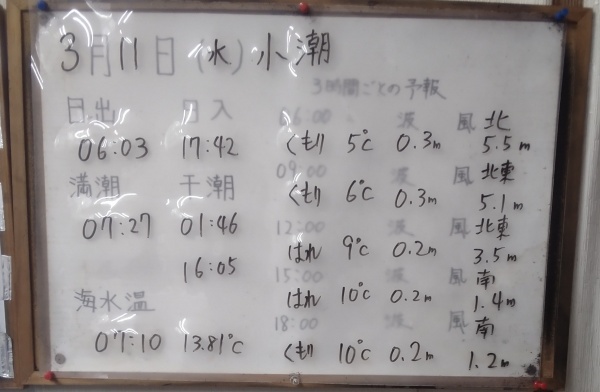 3月11日(水)小潮
日出 日入
06:03 17:42
満潮 干潮
07:27 01:46
16:05
海水温
07:10 13.81℃
3時間ごとの予報
06:00 波 風 北
くもり 5℃ 0.3m 5.5m
09:00 波 風 北東
くもり 6℃ 0.3m 5.1m
12:00 波 風 北東
はれ 9℃ 0.2m 3.5m
15:00 波 風 南
はれ 10℃ 0.2m 1.4m
18:00 波 風 南
くもり 10℃ 0.2m 1.2m